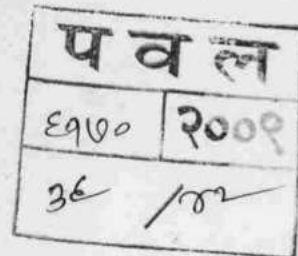 प व ल
६१७० २००९
३६ /